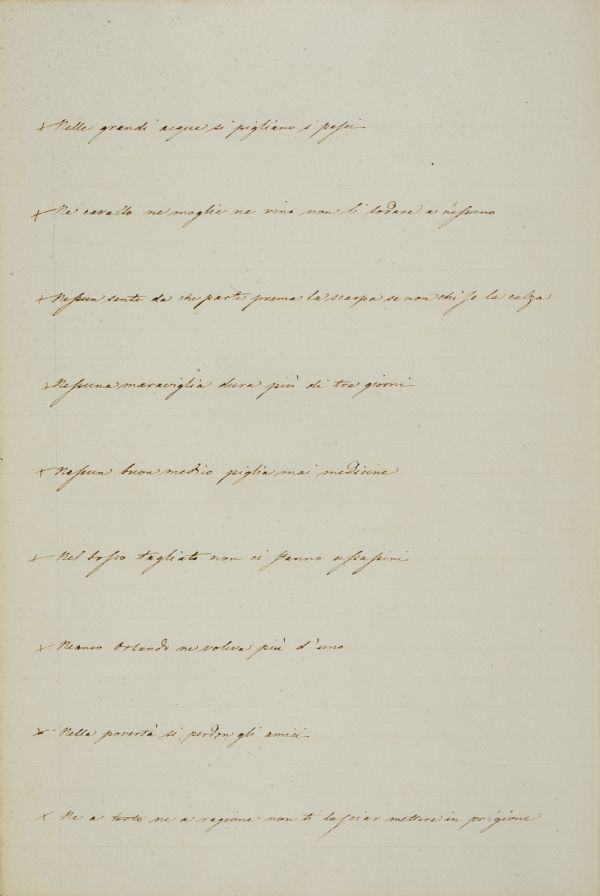 x Nelle grandi acque si pigliano i pesci
x Ne cavallo ne moglie ne vino non li lodare a nessuno
x Nessun sente da che parte prema la scarpa se non chi se la calza
x Nessuna maraviglia dura più di tre giorni
x Nessun buon medico piglia mai medicine
x Nel bosco tagliato non ci stanno assassini
x Neanco Orlando ne voleva più d'uno
x Nella povertà si perdon gli amici
x Ne a torto ne a ragione non ti lasciar mettere in prigione